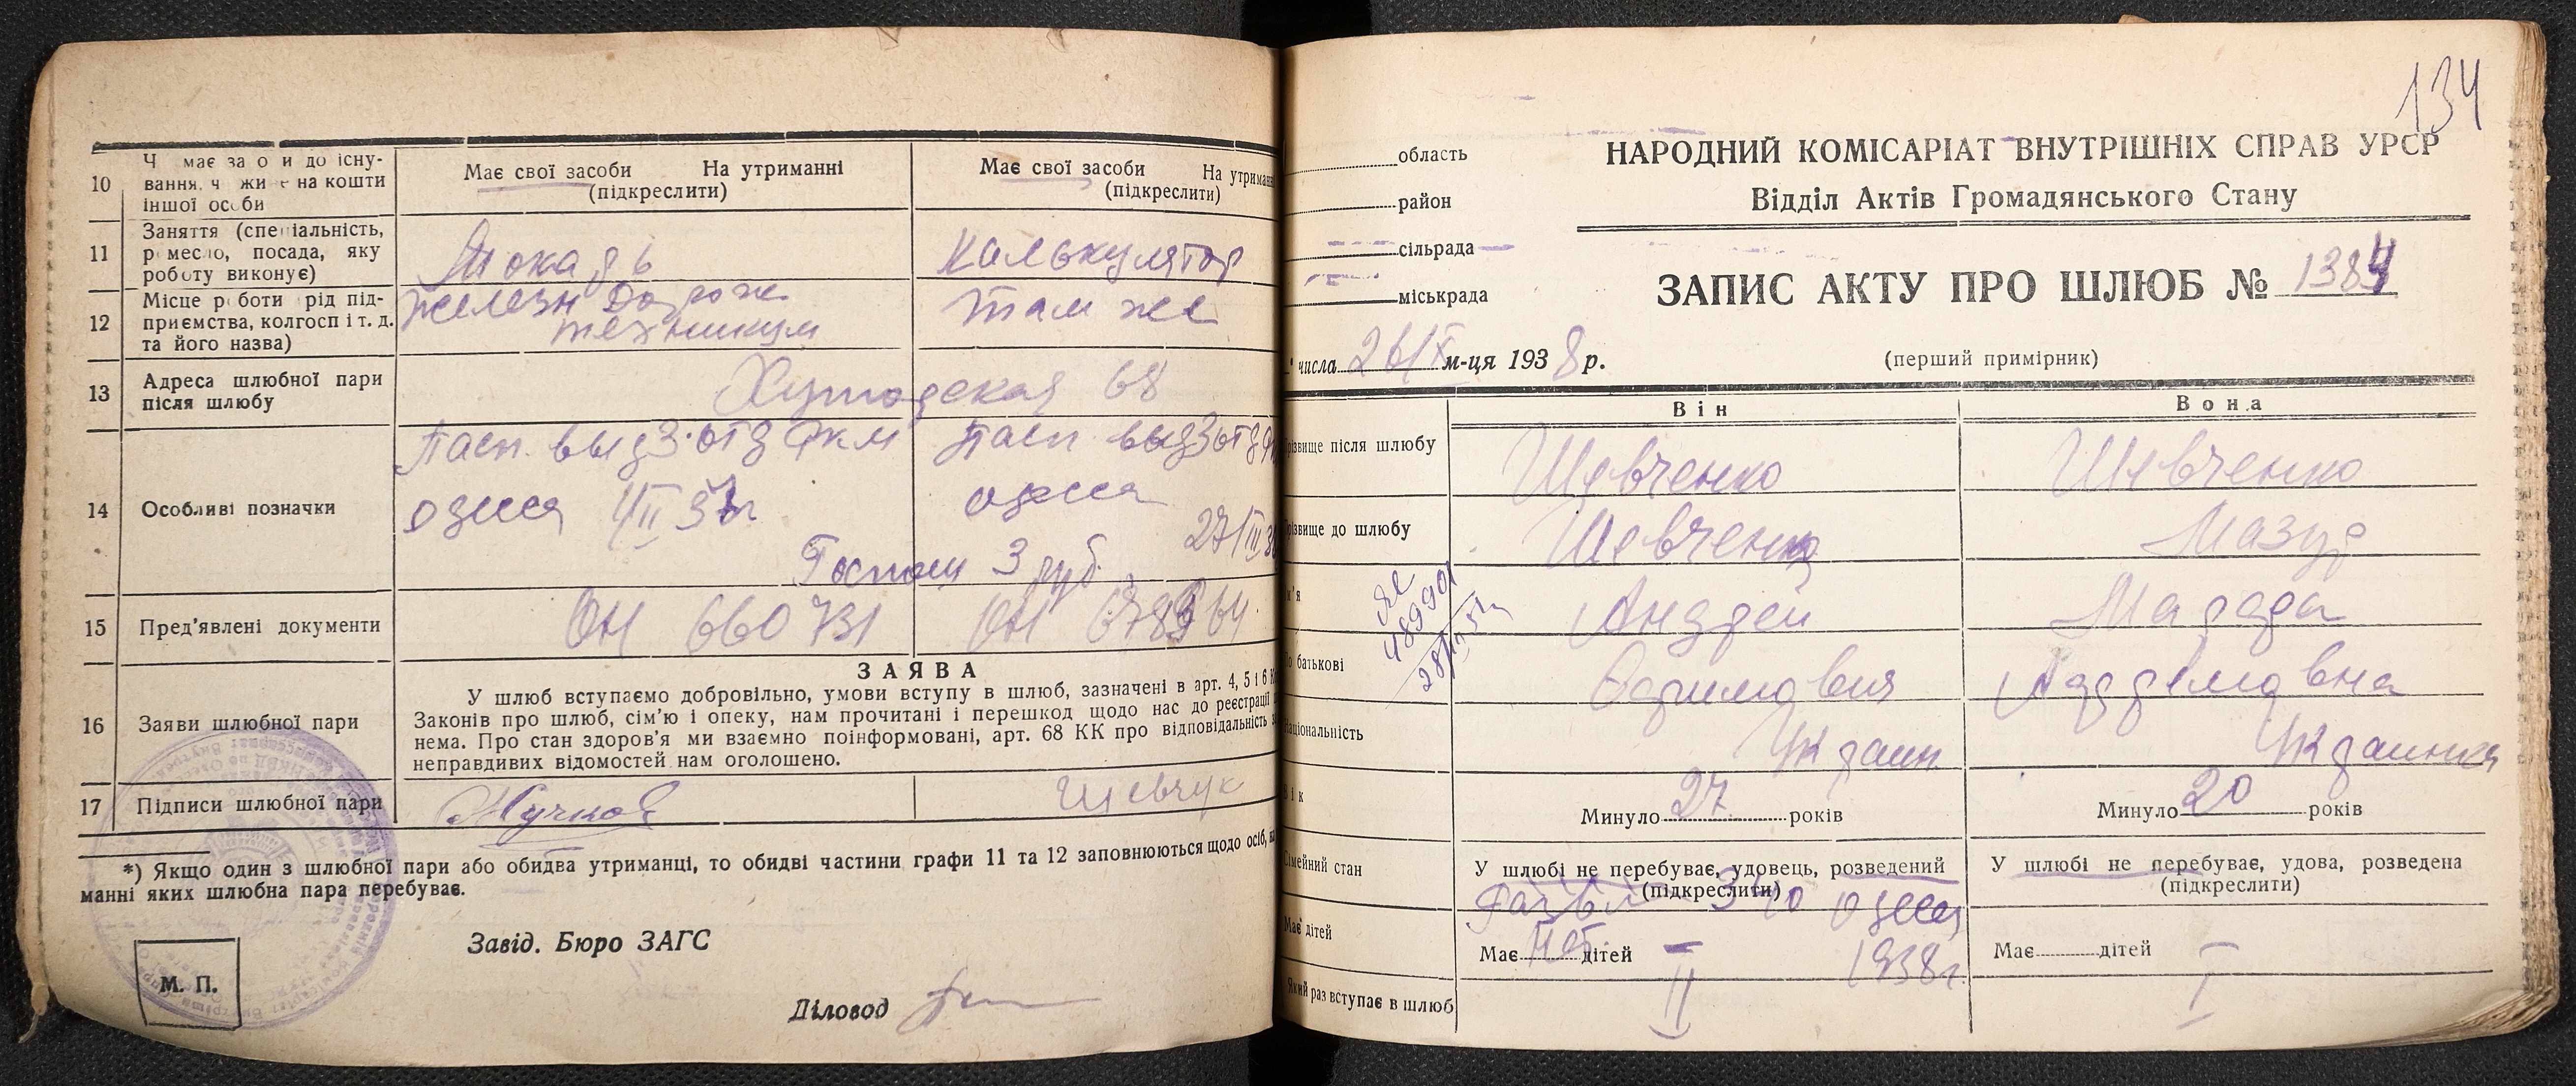 10
Ч має за о и до існу-
вання, ч жи є на кошти
іншої особи
Має свої засоби На утриманні
(підкреслити)
Має свої засоби На утриманні
(підкреслити)
11
Заняття (спеціальність,
ремесло, посада, яку
роботу виконує)
Токарь
Калькулятор
12
Місце роботи рід під-
приємства, колгосп і т. д.
та його назва)
железн дорож
техникум
там же
13
Адреса шлюбної пари
після шлюбу
Хуторская 68
14
Особливі позначки
Пасп. выд 3 отд РКМ
Одесса 4/II 37г.
Пасп. выд 3 отд
Одесса
27/III 3
Госпош 3 руб.
15
Пред'явлені документи
ОН 660731
ОН
16
Заяви шлюбної пари
ЗАЯВА
У шлюб вступаємо добровільно, умови вступу в шлюб, зазначені в арт. 4, 5 і 6
Законів про шлюб, сім'ю і опеку, нам прочитані і перешкод щодо нас до реєстрації
нема. Про стан здоров'я ми взаємно поінформовані, арт. 68 КК про відповідальність
неправдивих відомостей нам оголошено.
17
Підписи шлюбної пари
Кучков
Шевчук
*) Якщо один з шлюбної пари або обидва утриманці, то обидві частини графи 11 та 12 заповнюються щодо осіб, на
манні яких шлюбна пара перебуває.
Завід. Бюро ЗАГС
М. П.
Діловод
134
область
район
сільрада
міськрада
НАРОДНИЙ КОМІСАРІАТ ВНУТРІШНІХ СПРАВ УРСР
Відділ Актів Громадянського Стану
ЗАПИС АКТУ ПРО ШЛЮБ № 1384
" числа 26/X м-ця 1938 р.
(перший примірник)
Він
Вона
Прізвище після шлюбу
Шевченко
Шевченко
Прізвище до шлюбу
Шевченко
Мазур
Ім'я
Андрей
Марара
ЯЕ
489901
По батькові
Ефимович
Ардремовна
Національність
Украин.
Украинка
Вік
Минуло 27 років
Минуло 20 років
Сімейний стан
У шлюбі не перебуває, удовець, розведений
(підкреслити)
У шлюбі не перебуває, удова, розведена
(підкреслити)
Одесса
1938г.
Має дітей
Має нет дітей
Має дітей
Який раз вступає в шлюб
II
I